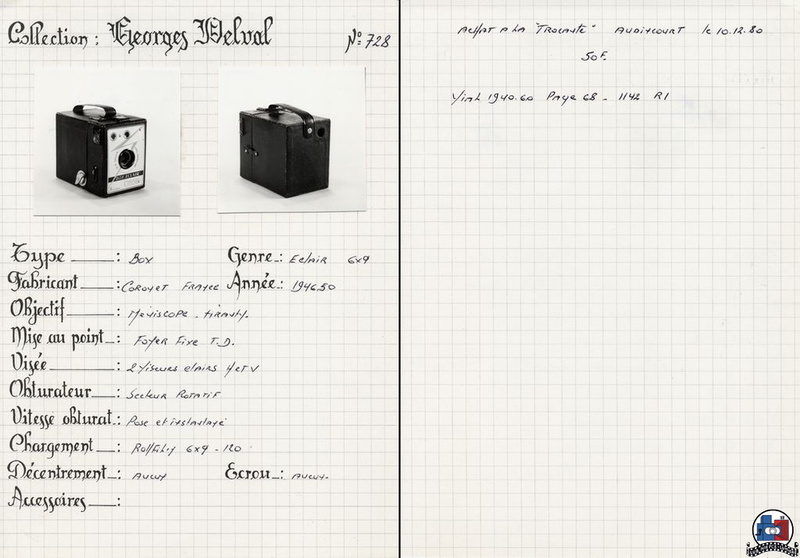 Collection : Georges Delval N° 728
Type : Box Genre : Eclair 6x9
Fabricant : Coronet France Année : 1946.50
Objectif : Meniscope . Hirault.
Mise au point : Foyer Fixe T.D.
Visée : 2 Viseurs clairs H et V
Obturateur : Secteur Rotatif
Vitesse obturat. : Pose et instantané
Chargement : Rollfilm 6x9 - 120
Décentrement : Aucun Ecrou : Aucun.
Accessoires :
Achat a la "Trocante" Audincourt le 10.12.80
50F.
Vial 1940.60 Page 68 - 1142 R1